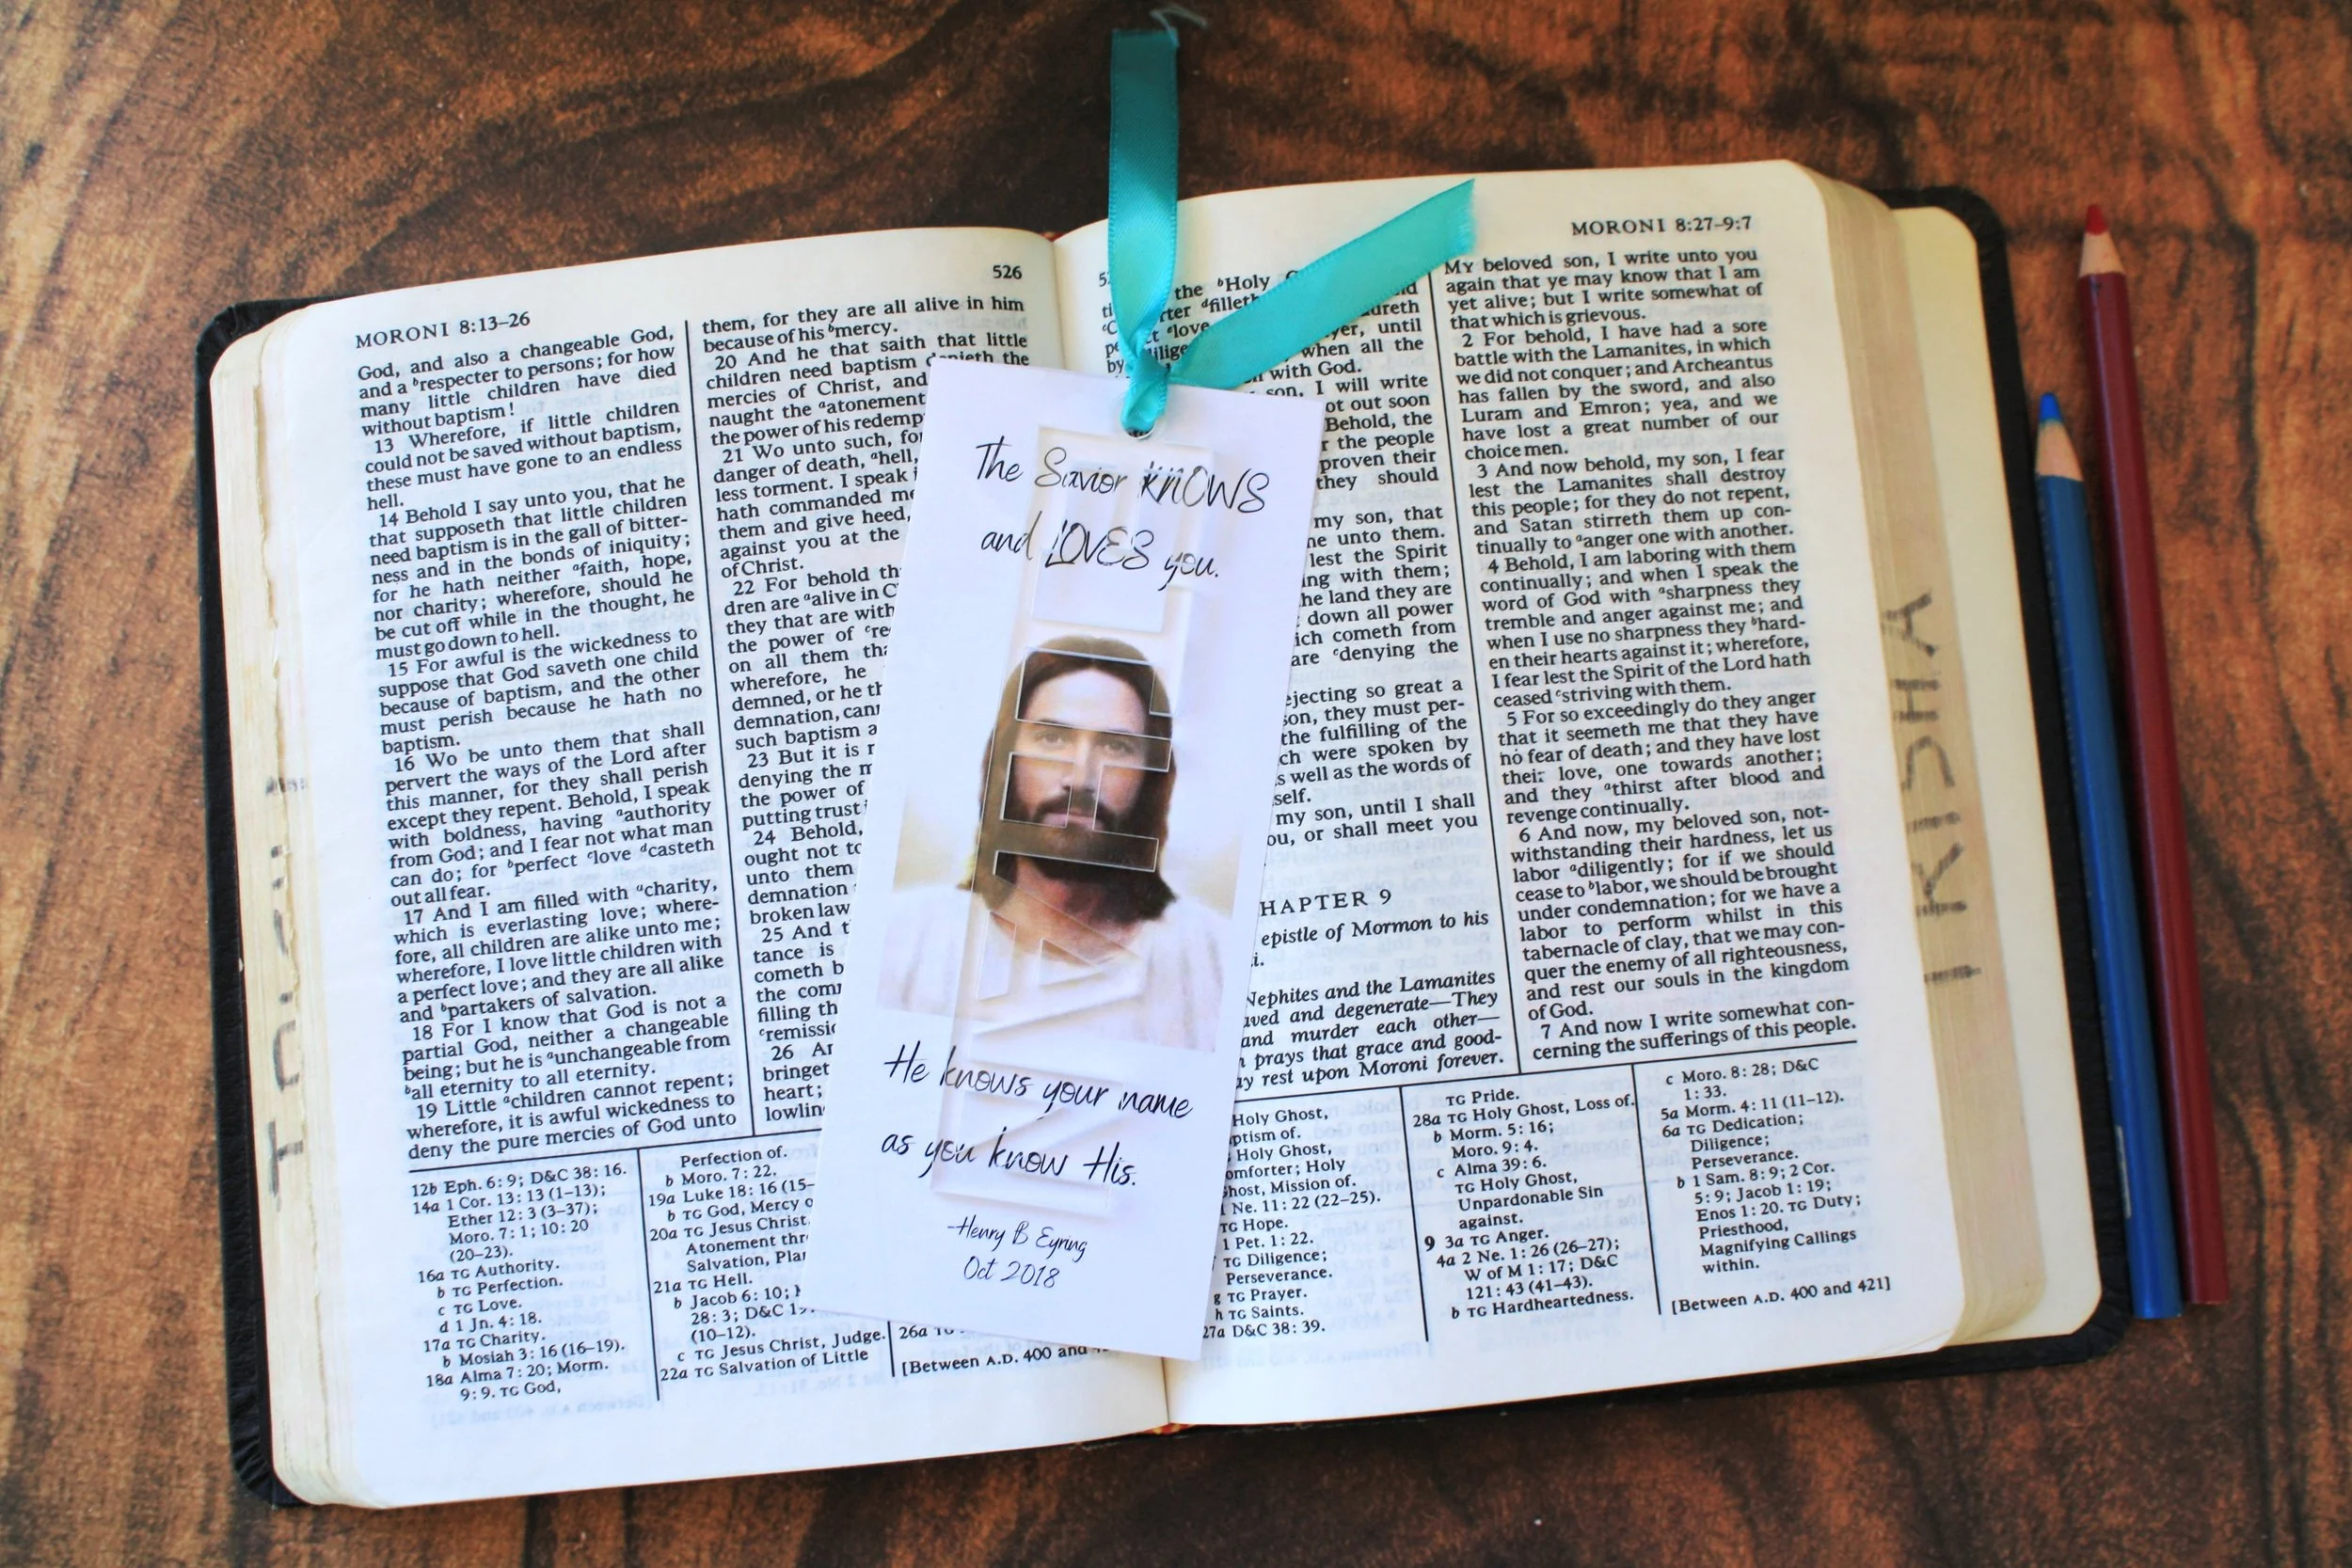 MORONI 8:13–26
526
God, and also a changeable God,
and a brespecter to persons; for how
many little children have died
without baptism!
13 Wherefore, if little children
could not be saved without baptism,
these must have gone to an endless
hell.
14 Behold I say unto you, that he
that supposeth that little children
need baptism is in the gall of bitter-
ness and in the bonds of iniquity;
for he hath neither afaith, hope,
nor charity; wherefore, should he
be cut off while in the thought, he
must go down to hell.
15 For awful is the wickedness to
suppose that God saveth one child
because of baptism, and the other
must perish because he hath no
baptism.
16 Wo be unto them that shall
pervert the ways of the Lord after
this manner, for they shall perish
except they repent. Behold, I speak
with boldness, having aauthority
from God; and I fear not what man
can do; for bperfect clove dcasteth
out all fear.
17 And I am filled with acharity,
which is everlasting love; where-
fore, all children are alike unto me;
wherefore, I love little children with
a perfect love; and they are all alike
and bpartakers of salvation.
18 For I know that God is not a
partial God, neither a changeable
being; but he is aunchangeable from
ball eternity to all eternity.
19 Little achildren cannot repent;
wherefore, it is awful wickedness to
deny the pure mercies of God unto
them, for they are all alive in him
because of his bmercy.
20 And he that saith that little
children need baptism denieth the
mercies of Christ, and
naught the aatonement
the power of his redemp
21 Wo unto such, for
danger of death, ahell,
less torment. I speak
hath commanded me
them and give heed,
against you at the
of Christ.
22 For behold th
dren are aalive in C
they that are with
the power of cre
on all them tha
wherefore, he
demned, or he th
demnation, cann
such baptism a
23 But it is
denying the m
the power of
putting trust
24 Behold,
ought not to
unto them
demnation
broken law
25 And t
tance is
cometh b
the com
filling th
cremissio
26 An
bringet
heart;
lowlin
12b Eph. 6:9; D&C 38:16.
14a 1 Cor. 13:13 (1–13);
Ether 12:3 (3–37);
Moro. 7:1; 10:20
(20–23).
16a TG Authority.
b TG Perfection.
c TG Love.
d 1 Jn. 4:18.
17a TG Charity.
b Mosiah 3:16 (16–19).
18a Alma 7:20; Morm.
9:9. TG God,
Perfection of.
b Moro. 7:22.
19a Luke 18:16 (15–
b TG God, Mercy o
20a TG Jesus Christ,
Atonement thr
Salvation, Plan
21a TG Hell.
b Jacob 6:10;
28:3; D&C 19:
(10–12).
c TG Jesus Christ, Judge.
22a TG Salvation of Little
26a TG
[Between A.D. 400 and
The Savior KNOWS
and LOVES you.
NAME
He knows your name
as you know His.
-Henry B Eyring
Oct 2018
MORONI 8:27–9:7
the bHoly
dfilleth
clove
until
when all the
with God.
son, I will write
ot out soon
Behold, the
the people
proven their
they should
my son, that
ne unto them.
lest the Spirit
ing with them;
he land they are
down all power
ich cometh from
are cdenying the
ejecting so great a
son, they must per-
the fulfilling of the
ch were spoken by
s well as the words of
self.
my son, until I shall
ou, or shall meet you
HAPTER 9
epistle of Mormon to his
i.
Nephites and the Lamanites
aved and degenerate—They
and murder each other—
prays that grace and good-
ay rest upon Moroni forever.
MY beloved son, I write unto you
again that ye may know that I am
yet alive; but I write somewhat of
that which is grievous.
2 For behold, I have had a sore
battle with the Lamanites, in which
we did not conquer; and Archeantus
has fallen by the sword, and also
Luram and Emron; yea, and we
have lost a great number of our
choice men.
3 And now behold, my son, I fear
lest the Lamanites shall destroy
this people; for they do not repent,
and Satan stirreth them up con-
tinually to aanger one with another.
4 Behold, I am laboring with them
continually; and when I speak the
word of God with asharpness they
tremble and anger against me; and
when I use no sharpness they bhard-
en their hearts against it; wherefore,
I fear lest the Spirit of the Lord hath
ceased cstriving with them.
5 For so exceedingly do they anger
that it seemeth me that they have
no fear of death; and they have lost
their love, one towards another;
and they athirst after blood and
revenge continually.
6 And now, my beloved son, not-
withstanding their hardness, let us
labor adiligently; for if we should
cease to blabor, we should be brought
under condemnation; for we have a
labor to perform whilst in this
tabernacle of clay, that we may con-
quer the enemy of all righteousness,
and rest our souls in the kingdom
of God.
7 And now I write somewhat con-
cerning the sufferings of this people.
Holy Ghost,
ptism of.
Holy Ghost,
omforter; Holy
host, Mission of.
1 Ne. 11:22 (22–25).
TG Hope.
1 Pet. 1:22.
f TG Diligence;
Perseverance.
g TG Prayer.
h TG Saints.
27a D&C 38:39.
TG Pride.
28a TG Holy Ghost, Loss of.
b Morm. 5:16;
Moro. 9:4.
c Alma 39:6.
TG Holy Ghost,
Unpardonable Sin
against.
9 3a TG Anger.
4a 2 Ne. 1:26 (26–27);
W of M 1:17; D&C
121:43 (41–43).
b TG Hardheartedness.
c Moro. 8:28; D&C
1:33.
5a Morm. 4:11 (11–12).
6a TG Dedication;
Diligence;
Perseverance.
b 1 Sam. 8:9; 2 Cor.
5:9; Jacob 1:19;
Enos 1:20. TG Duty;
Priesthood,
Magnifying Callings
within.
[Between A.D. 400 and 421]
TRISHA